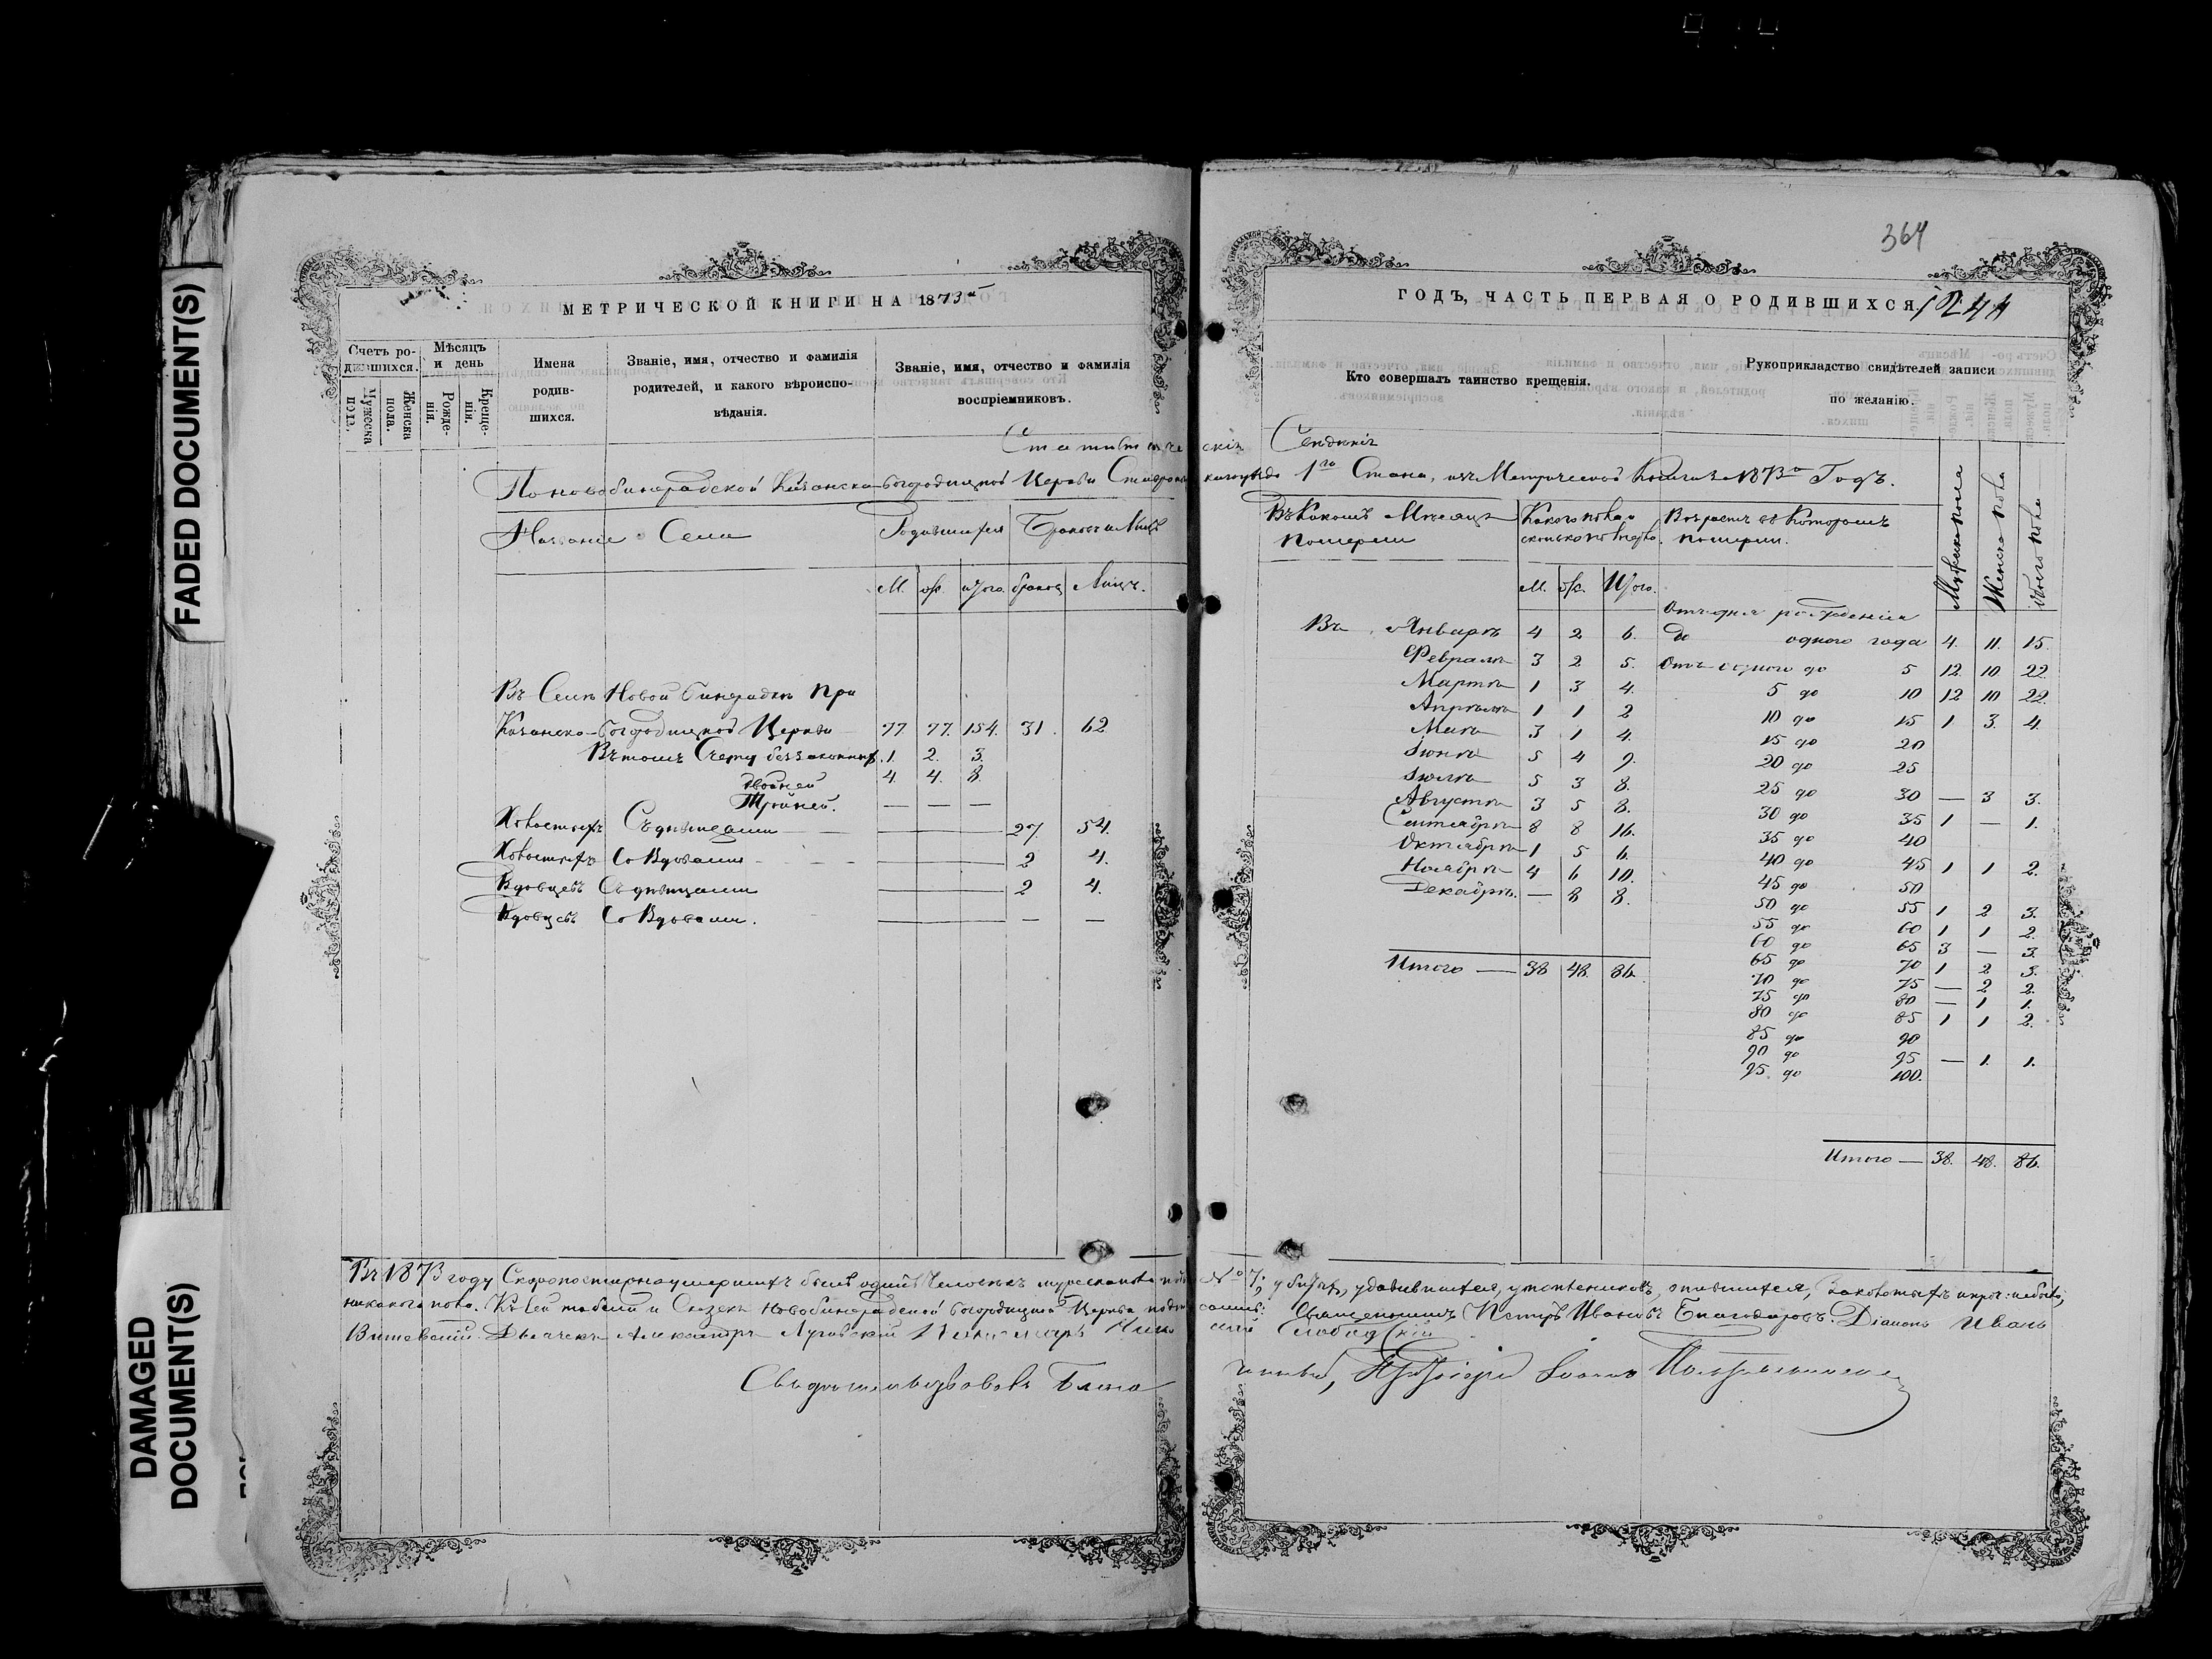 FADED DOCUMENT(S)
DAMAGED
DOCUMENT(S)
МЕТРИЧЕСКОЙ КНИГИ НА 1873й
Счетъ ро-
дившихся.
Мѣсяцъ
и день
Мужеска
пола.
Женска
пола.
Рожде-
нія.
Креще-
нія.
Имена
родив-
шихся.
Званіе, имя, отчество и фамилія
родителей, и какого вѣроиспо-
вѣданія.
Званіе, имя, отчество и фамилія
воспріемниковъ.
По новобинарадской Казанско-богородицкой Церкви
Названіе Села
Родившихся
М. ж. итого. браков Лицъ.
Въ Селѣ Новой бинарадкѣ при
Казанско-богородицкой Церкви 77 77. 154. 31. 62
Въ томъ Счету беззаконных. 1. 2. 3.
двойней 4. 4. 8.
Тройней. — — —
Холостыхъ Съ дѣвицами — 27. 54.
Холостыхъ Со Вдовами — 2 4.
Вдовцевъ Съ дѣвицами — 2 4.
Вдовцевъ Со Вдовами. — — —
Въ 1873 году Скоропостижноумершихъ былъ одинъ Человѣкъ
Дьячекъ Александръ
364
ГОДЪ, ЧАСТЬ ПЕРВАЯ О РОДИВШИХСЯ
Кто совершалъ таинство крещенія.
Рукоприкладство свидѣтелей записи
по желанію.
1го Стана, изъ Метрической Книги за 1873й Годъ.
Въ Какомъ Мѣсяцѣ
померли
Возрастъ въ Которомъ
померли.
Мужеска пола
Женска пола
обоего пола
М. ж. Итого.
Отъ дня рожденія
Въ Январѣ 4 2 6. до одного года 4. 11. 15.
Февралѣ 3 2 5. Отъ одного до 5 12. 10 22.
Мартѣ 1 3 4. 5 до 10 12 10 22.
Апрѣлѣ 1 1 2 10 до 15 1 3. 4.
Маѣ 3 1 4. 15 до 20
Іюнѣ 5 4 9. 20 до 25
Іюлѣ 5 3 8. 25 до 30 — 3 3.
Августѣ 3 5 8. 30 до 35 1 — 1.
Сентябрѣ 8 8 16. 35 до 40
Октябрѣ 1 5 6. 40 до 45 1 1 2.
Ноябрѣ 4 6 10. 45 до 50
Декабрѣ. — 8 8. 50 до 55 1 2 3.
55 до 60 1 1 2.
60 до 65 3 — 3.
65 до 70 1 2 3.
70 до 75 — 2 2.
75 до 80 — 1 1.
80 до 85 1 1 2.
85 до 90
90 до 95 — 1. 1.
95 до 100.
Итого — 38 48. 86.
Итого — 38. 48. 86.
Священникъ Петръ Ивановъ Благодаровъ. Діаконъ Иванъ